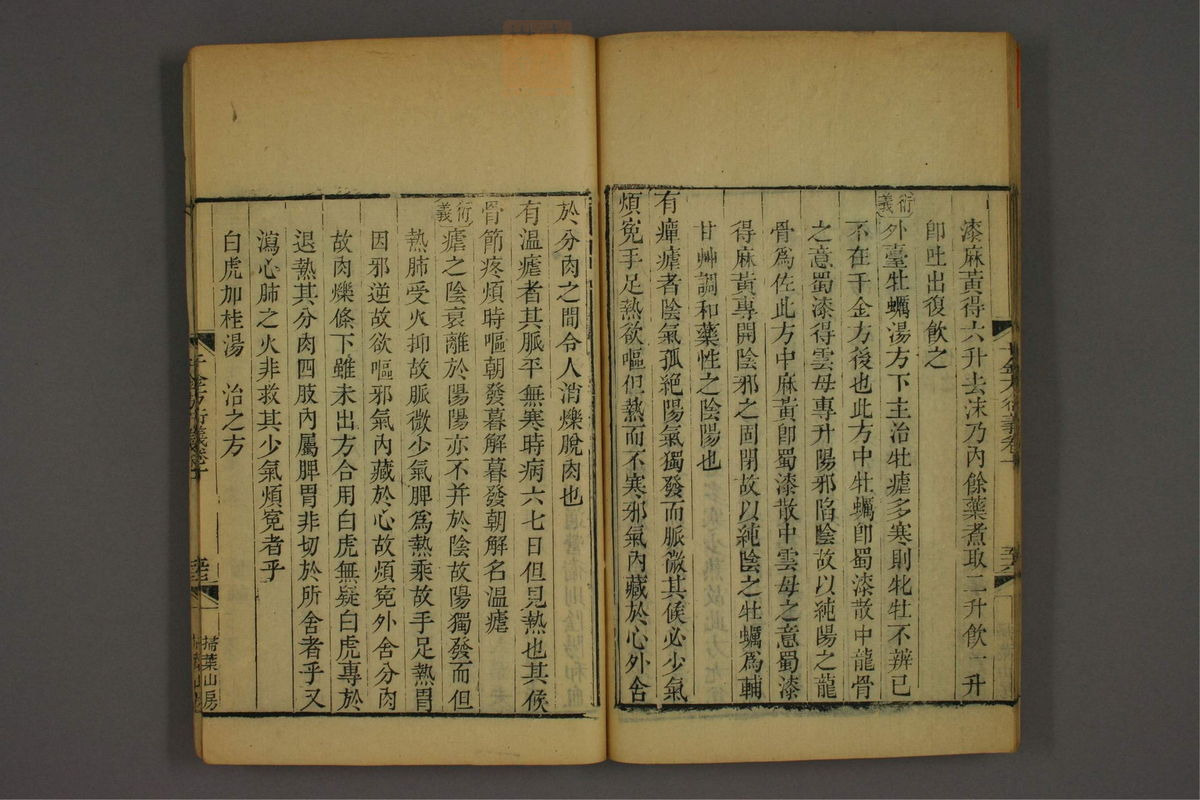 漆麻黃得六升去沫乃內餘藥煮取二升飲一升
卽吐出復飲之
衍義
外臺牡蠣湯方下主治牡瘧多寒則牝牡不辨已
不在千金方後也此方中牡蠣卽蜀漆散中龍骨
之意蜀漆得雲母專升陽邪陷陰故以純陽之龍
骨爲佐此方中麻黃卽蜀漆散中雲母之意蜀漆
得麻黃專開陰邪之固閉故以純陰之牡蠣爲輔
甘艸調和藥性之陰陽也
有癉瘧者陰氣孤絕陽氣獨發而脈微其候必少氣
煩寃手足熱欲嘔但熱而不寒邪氣內藏於心外舍
於分肉之間令人消爍脫肉也
有溫瘧者其脈平無寒時病六七日但見熱也其候
骨節疼煩時嘔朝發暮解暮發朝解名溫瘧
衍義
瘧之陰衰離於陽陽亦不并於陰故陽獨發而但
熱肺受火抑故脈微少氣脾爲熱乘故手足熱胃
因邪逆故欲嘔邪氣內藏於心故煩寃外舍分肉
故肉爍條下雖未出方合用白虎無疑白虎專於
退熱其分肉四肢內屬脾胃非切於所舍者乎又
瀉心肺之火非救其少氣煩寃者乎
白虎加桂湯　治之方
千金方衍義卷十
掃葉山房